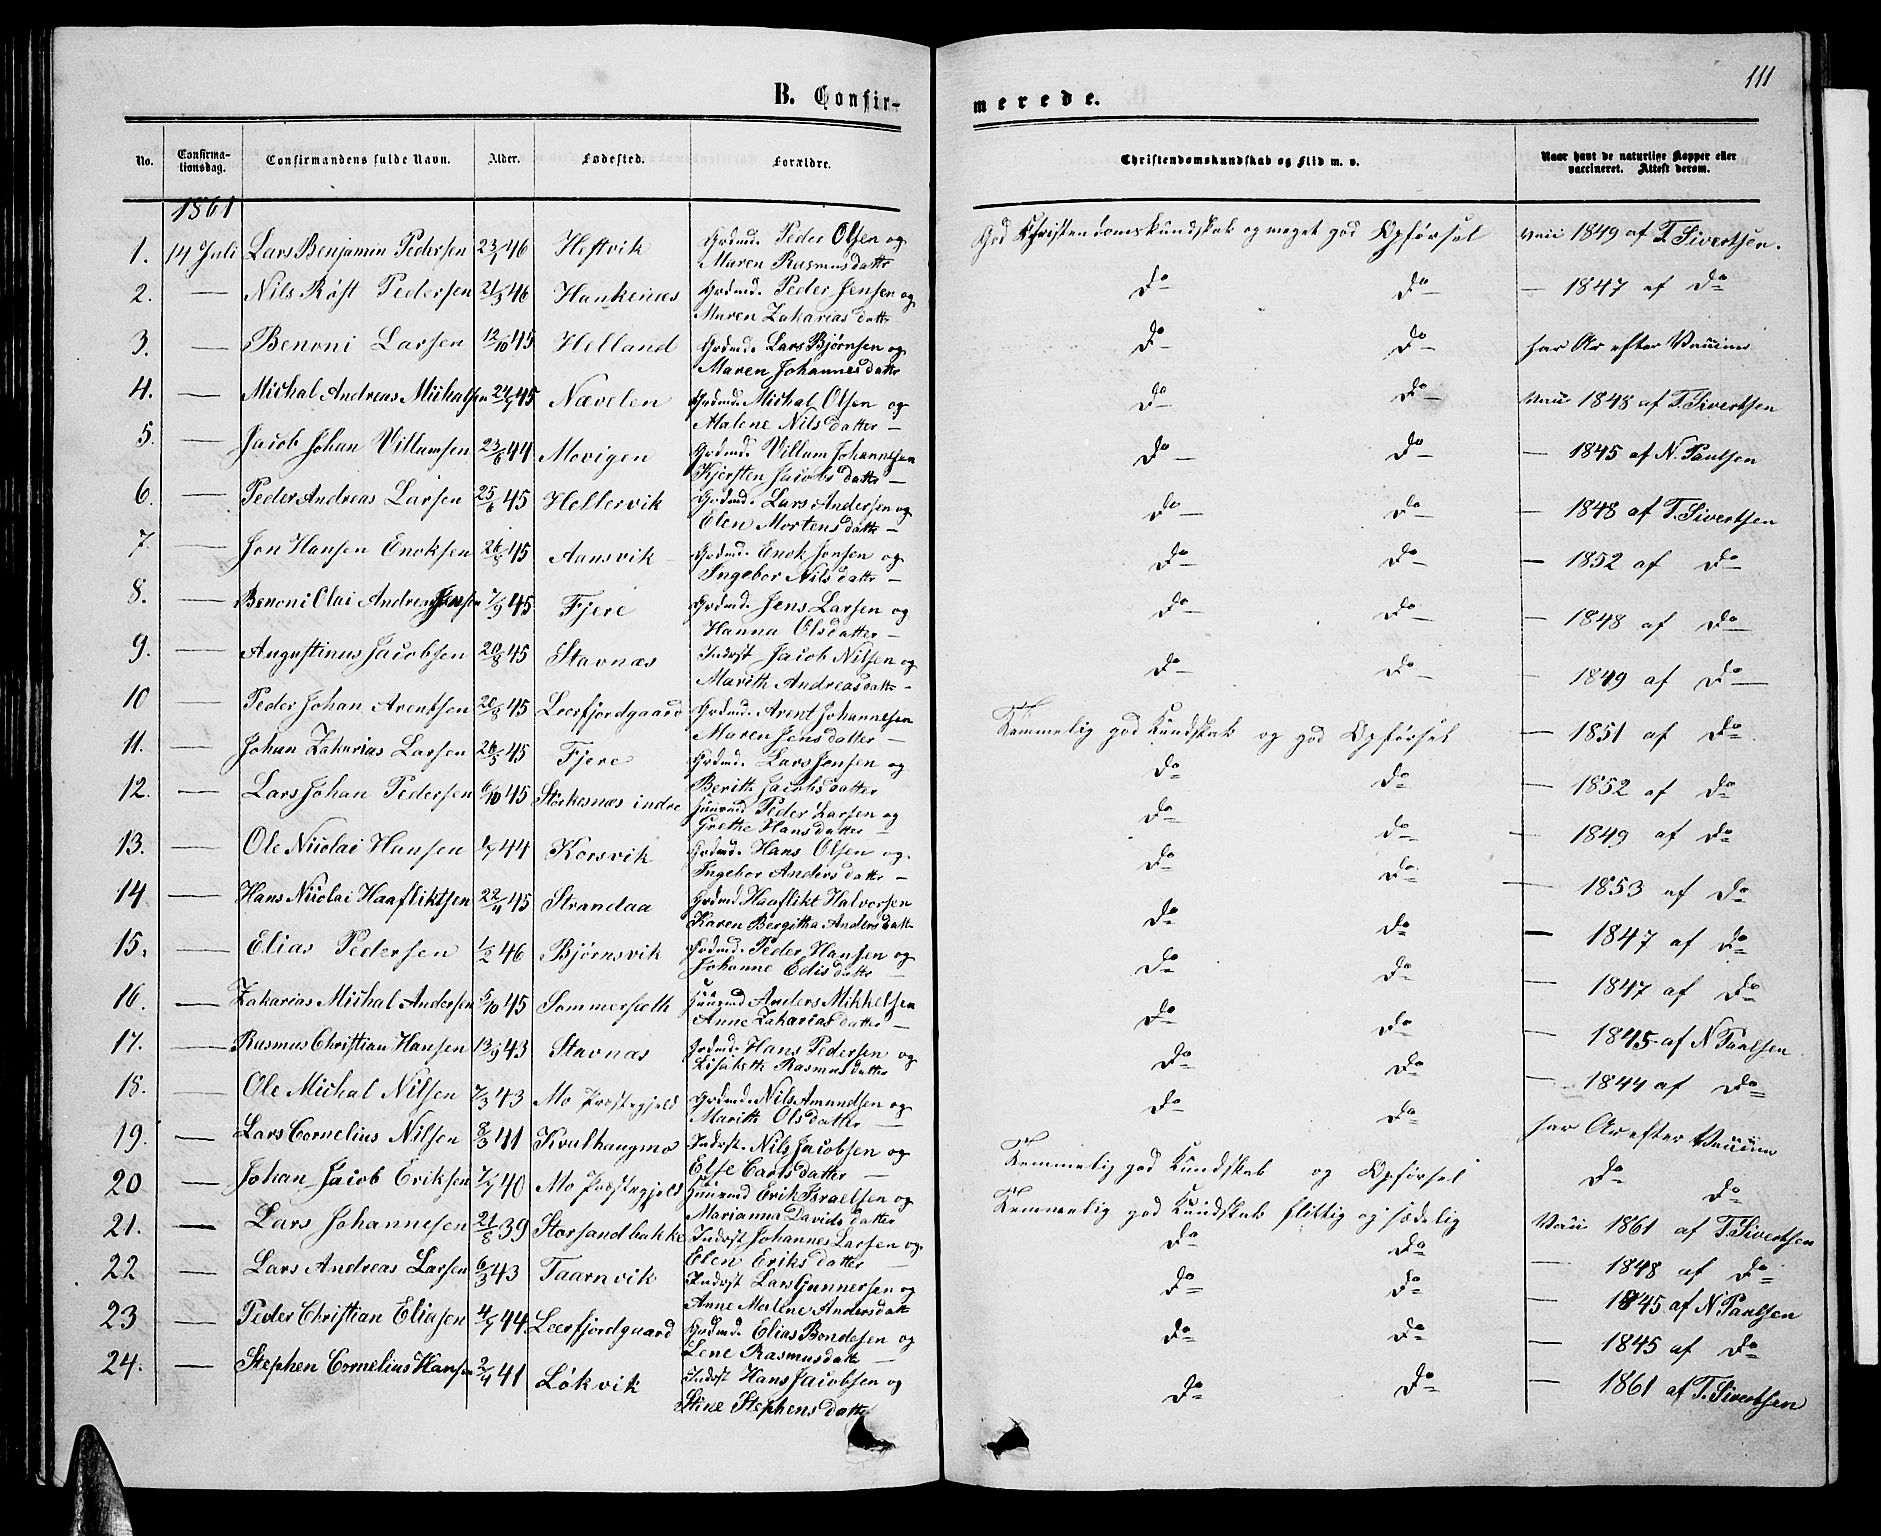 111
B. Confir-
merede.
No. Confirma-tionsdag. Confirmandens fulde Navn. Alder. Fødested. Forældre. Christendomskundskab og Flid m. v. Naar havt de naturlige Kopper eller vaccineret. Attest derom.
1861
1. 14 Juli Lars Benjamin Pedersen 23/1 46 Heftvik Grdmd. Peder Olsen og God Christendomskundskab og meget god Opførsel Vacc 1849 af T. Sivertsen.
Maren Rasmusdatter
2. — Nils Røst Pedersen 21/3 46 Hankenæs Grdmd. Peder Jensen og Do — Do — — 1847 af Do
Maren Zakariasdattr
3. — Benoni Larsen 12/10 45 Helland Grdmd. Lars Bjørnsen og Do — Do — har Ar efter Vaccine
Maren Johannesdattr
4. — Michal Andreas Michalsen 24/7 45 Nævelen Grdmd. Michal Olsen og Do — Do — Vacc 1848 af T. Sivertsen
Malene Nilsdatter —
5. — Jacob Johan Villumsen 23/6 44 Movigen Grdmd. Villum Johannesen Do — Do — — 1845 af N. Paulsen
Kjersten Jacobsdattr —
6. — Peder Andreas Larsen 25/6 45 Hellervik Grdmd. Lars Andersen og Do — Do — — 1848 af T. Sivertsen
Elen Mortensdattr —
7. — Jon Hansen Enoksen 26/8 45 Aansvik — Grdmd. Enok Jonsen og Do — Do — — 1852 af Do
Ingebor Nilsdattr —
8. — Benoni Olai Andreas Jensen 7/9 45 Fjere Grdmd. Jens Larsen og Do — Do — — 1848 af Do
Hanna Olsdatter —
9. — Augustinus Jacobsen 20/8 45 Stavnæs Inderst Jacob Nilsen og Do — Do — — 1849 af Do
Marith Andreasdattr —
10 — Peder Johan Arentsen 20/8 45 Leerfjordgaard Grdmd. Arent Johannesen Temmelig god Kundskab og god Opførsel — 1851 af Do
Maren Jensdatter —
11. — Johan Zakarias Larsen 26/5 45 Fjere Grdmd. Lars Jonsen og Do Do — 1852 af Do
Berith Jacobsdatter
12. — Lars Johan Pedersen 6/10 45 Storkesnæs indre Huusmd Peder Larsen og Do Do — 1849 af Do
Grethe Hansdatter —
13. — Ole Nicolai Hansen 44 Korsvik Grdmd. Hans Olsen og Do Do — 1853 af Do
Ingebor Andersdattr —
14 — Hans Nicolai Haafliktsen 22/4 45 Strandaa Grdmd Haaflikt Halvorsen Do Do — 1847 af Do
Karen Bergitha Andersdattr
15. — Elias Pedersen 1/2 46 Bjørnsvik Grdmd. Peder Hansen og Do Do — 1847 af Do
Johanne Edisdattr —
16. — Zakarias Michal Andersen 5/10 45 Sommersæth Huusmd Anders Mikkelsen Do Do — 1845 af N Paulsen
Anne Zakariasdatter —
17. — Rasmus Christian Hansen 13/9 43 Stavnæs Grdmd. Hans Pedersen og Do Do — 1844 af Do
Lisabeth Rasmusdatter
18. — Ole Michal Nilsen 7/3 43 Mo Præstegjeld Grdmd. Nils Amundsen og Do Do har Ar efter Vaccine
Marith Olsdatter —
19. — Lars Cornelius Nilsen 8/3 41 Kvalhaugmo Inderst. Nils Jacobsen og Temmelig god Kundskab og Opførsel Do Do
Else Carlsdatter —
20 — Johan Jacob Eriksen 7/7 40 Mo Præstegjeld Huusmd Erik Israelsen og Temmelig god Kundskab flittig og sædelig Vacc 1861 af T. Sivertsen
Marianna Davidsdatter
21. — Lars Johannesen 21/8 39 Storsandbakke Inderst Johannes Larsen og Do Do — 1848 af Do
Elen Eriksdatter —
22 — Lars Andreas Larsen 6/3 43 Taarnvik Inderst Lars Gunnersen og Do Do — 1845 af N Paulsen
Anne Malene Andersdattr
23 — Peder Christian Eliasen 4/7 44 Leerfjordgaard Grdmd. Elias Bondesen og Do Do — 1845 af Do
Lene Rasmusdattr —
24. — Stephen Cornelius Hansen 2/4 41 Løkvik Inderst Hans Jacobsen og Do Do — 1861 af T. Sivertsen
Stine Stephensdatter